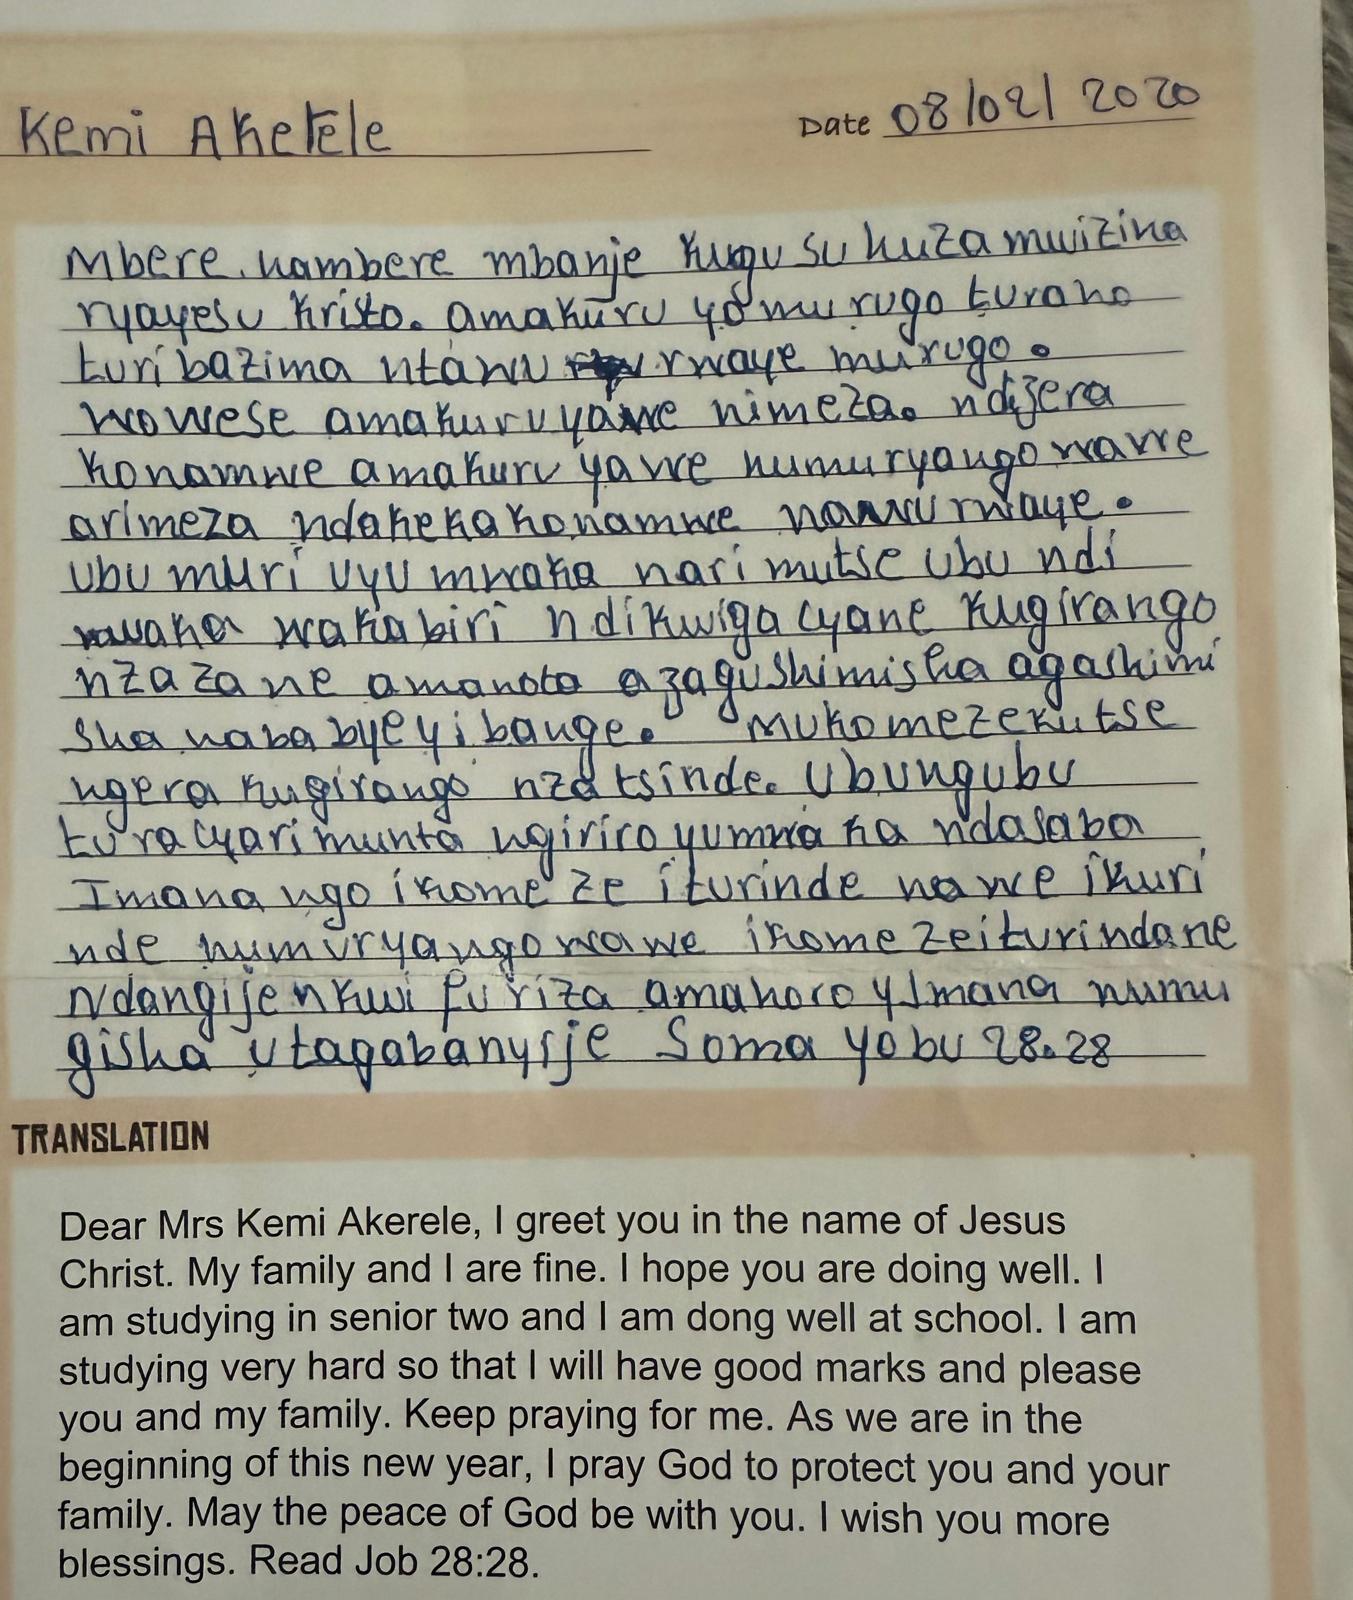 Kemi Akerele
Date 08/02/2020
Mbere nambere mbanje kugusuhuza mwizina
ryayesu kristo. amakuru yomurugo turaho
turi bazima ntanu rwaye murugo.
wowese amakuru yawe nimeza. ndizera
konamwe amakuru yawe numuryango wawe
arimeza ndakeka konamwe nawurwaye.
ubu muri uyu mwaka narimutse ubu ndi
mwaka wakabiri ndikwiga cyane kugirango
nzazane amanota azagushimisha agashimi
sha nababyeyi bange. Mukomezekutse
ngera kugirango nzatsinde. Ubungubu
turacyarimunta ngiriro yumwa ka ndasaba
Imana ngo ikome ze iturinde nawe ikuri
nde numuryango wawe ikomezeiturindane
Ndangije nkwi furiza amahoro y Imana numu
gisha utagabanyije Soma yobu 28.28
TRANSLATION
Dear Mrs Kemi Akerele, I greet you in the name of Jesus
Christ. My family and I are fine. I hope you are doing well. I
am studying in senior two and I am dong well at school. I am
studying very hard so that I will have good marks and please
you and my family. Keep praying for me. As we are in the
beginning of this new year, I pray God to protect you and your
family. May the peace of God be with you. I wish you more
blessings. Read Job 28:28.